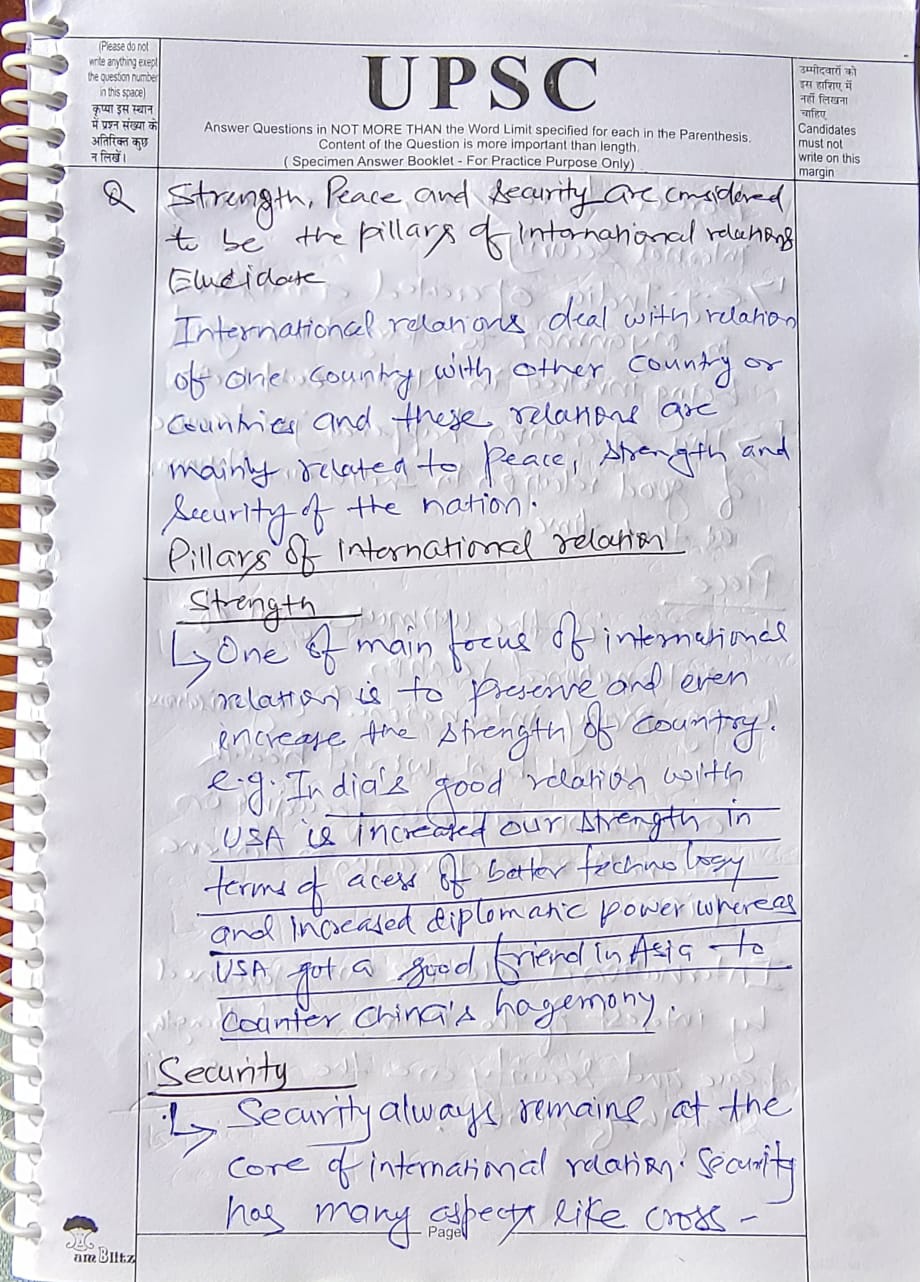 (Please do not
write anything exept
the question number
in this space)
कृप्या इस स्थान
में प्रश्न संख्या के
अतिरिक्त कुछ
न लिखें।
UPSC
Answer Questions in NOT MORE THAN the Word Limit specified for each in the Parenthesis.
Content of the Question is more important than length.
( Specimen Answer Booklet - For Practice Purpose Only)
उम्मीदवारों को
इस हाशिए में
नहीं लिखना
चाहिए
Candidates
must not
write on this
margin
Q Strength, Peace and Security are considered
to be the pillars of International relations
Elucidate
International relations deal with relation
of one country with other country or
countries and these relations are
mainly related to Peace, strength and
Security of the nation.
Pillars of international relation
Strength
↳ One of main focus of international
relation is to preserve and even
increase the strength of country.
e.g. India's good relation with
USA is increased our strength in
terms of acess of better technology
and increased diplomatic power whereas
USA got a good friend in Asia to
counter china's hagemony.
Security
↳ Security always remains at the
core of international relation. Security
has many aspects like cross-
Page
am Blitz